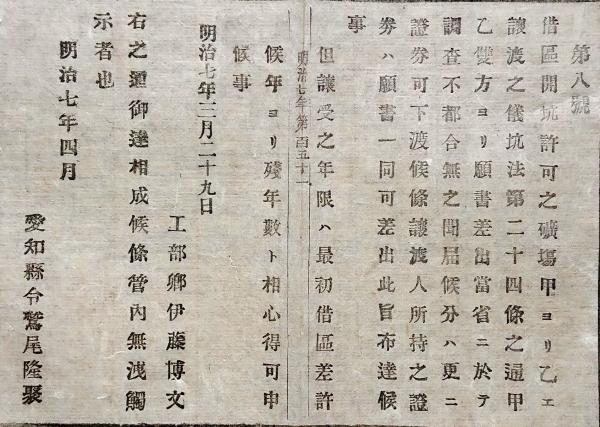 第八號
借區開坑許可之礦塲甲ヨリ乙ェ
讓渡之儀坑法第二十四條之通甲
乙雙方ヨリ願書差出當省ニ於テ
調査不都合無之聞屆候分ハ更ニ
證券可下渡候條讓渡人所持之證
券ハ願書一同可差出此旨布達候
事
明治七年第百五十一
但讓受之年限ハ最初借區差許
候年ヨリ殘年數ト相心得可申
候事
明治七年三月二十九日
工部卿伊藤博文
右之通御達相成候條管內無洩觸
示者也
明治七年四月
愛知縣令鷲尾隆聚